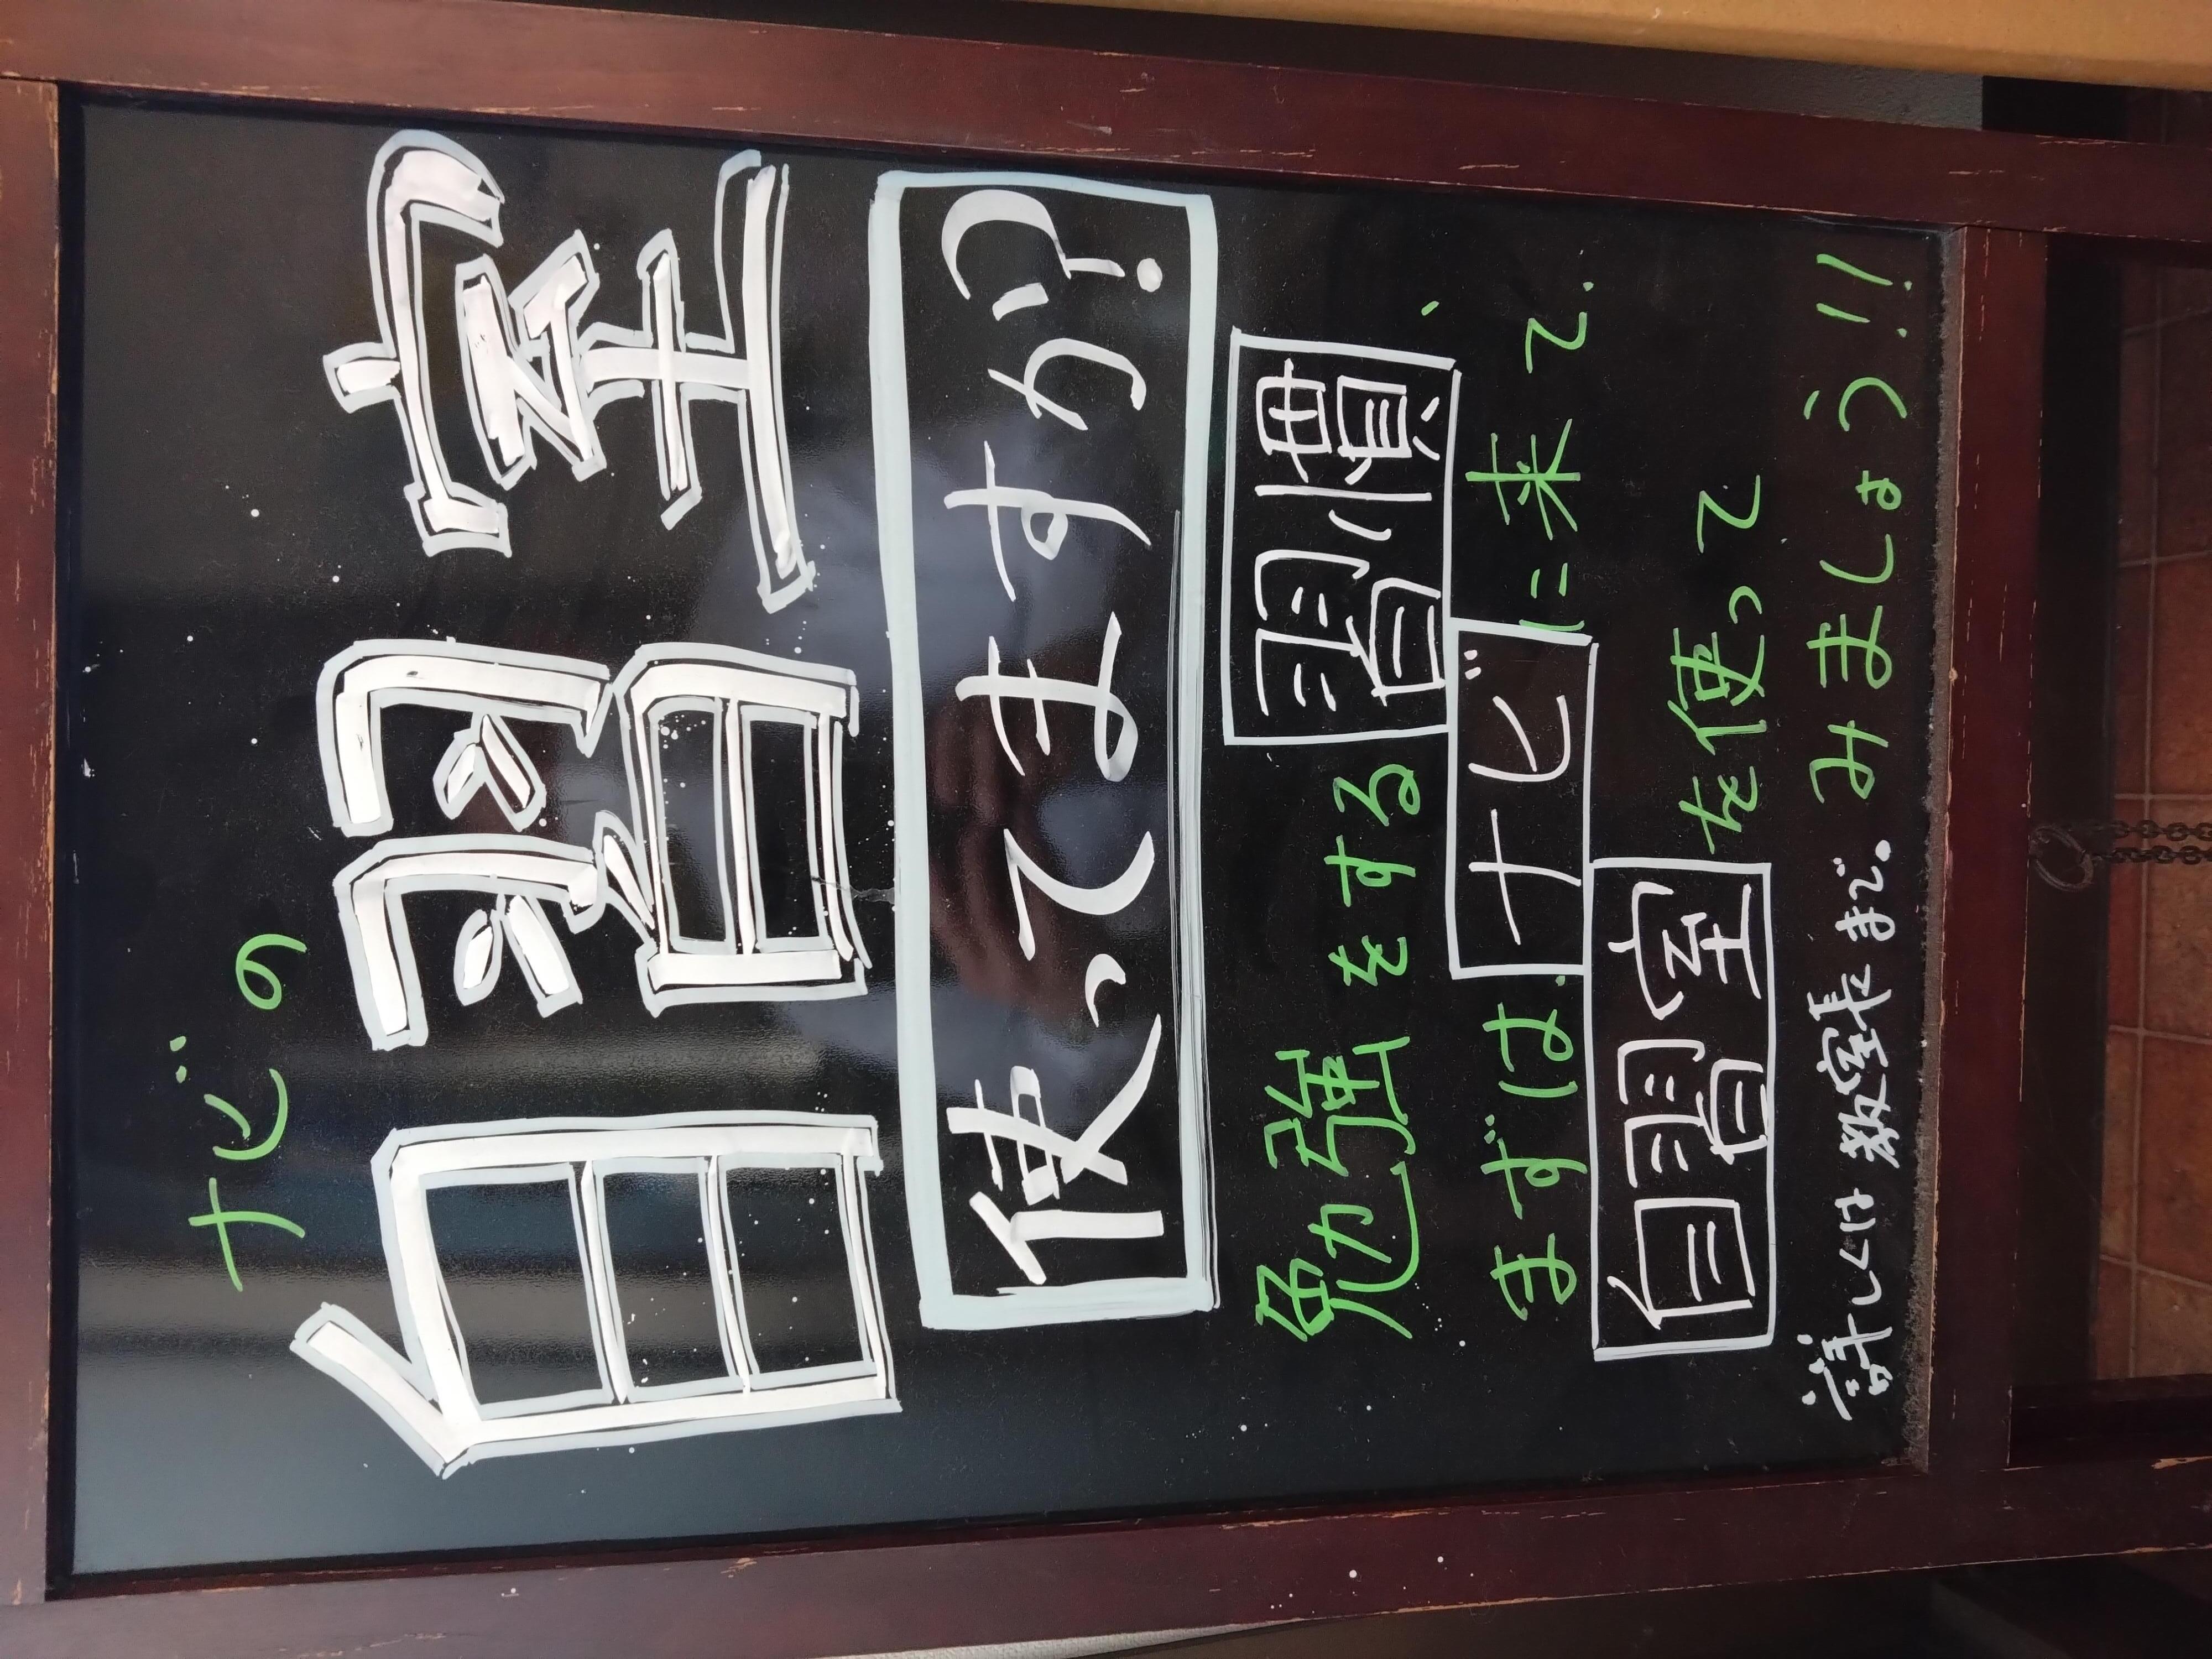 ナビの
自習室
使ってますか?
勉強をする習慣、
まずは、ナビに来て、
自習室を使って
みましょう!!
詳しくは教室長まで。